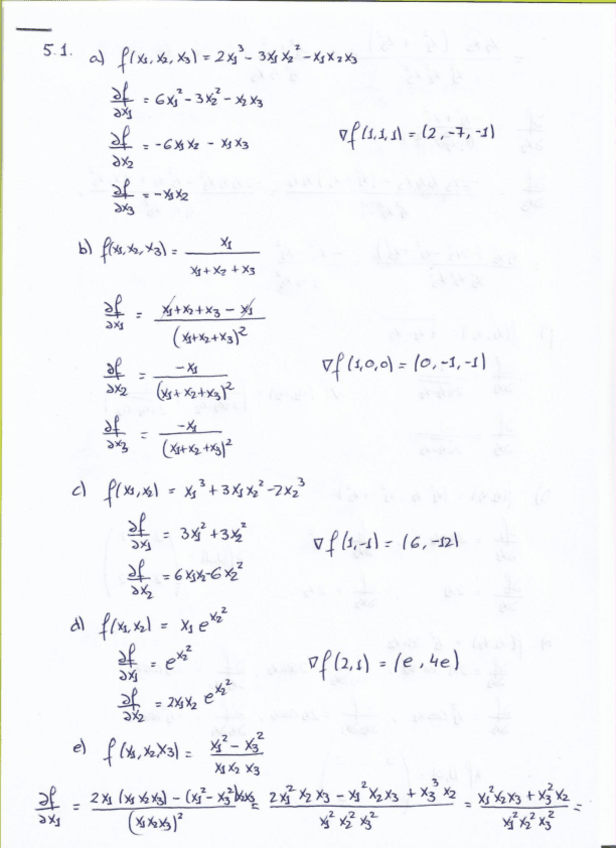 5.1. a) f(x₁, x₂, x₃) = 2x₁³ - 3x₁x₂² - x₁x₂x₃
∂f/∂x₁ = 6x₁² - 3x₂² - x₂x₃
∂f/∂x₂ = -6x₁x₂ - x₁x₃
∇f(1,1,1) = (2, -7, -1)
∂f/∂x₃ = -x₁x₂
b) f(x₁, x₂, x₃) = x₁/(x₁ + x₂ + x₃)
∂f/∂x₁ = (x₁ + x₂ + x₃ - x₁)/(x₁+x₂+x₃)²
∂f/∂x₂ = -x₁/(x₁ + x₂ + x₃)²
∇f(1,0,0) = (0, -1, -1)
∂f/∂x₃ = -x₁/(x₁+x₂+x₃)²
c) f(x₁, x₂) = x₁³ + 3x₁x₂² - 2x₂³
∂f/∂x₁ = 3x₁² + 3x₂²
∇f(1,-1) = (6, -12)
∂f/∂x₂ = 6x₁x₂ - 6x₂²
d) f(x₁, x₂) = x₁ e^(x₂²)
∂f/∂x₁ = e^(x₂²)
∇f(2,1) = (e, 4e)
∂f/∂x₂ = 2x₁x₂ e^(x₂²)
e) f(x₁, x₂, x₃) = (x₁² - x₃²)/(x₁ x₂ x₃)
∂f/∂x₁ = (2x₁(x₁x₂x₃) - (x₁² - x₃²)x₂x₃)/(x₁x₂x₃)² = (2x₁²x₂x₃ - x₁²x₂x₃ + x₃³x₂)/(x₁²x₂²x₃²) = (x₁²x₂x₃ + x₃³x₂)/(x₁²x₂²x₃²) =